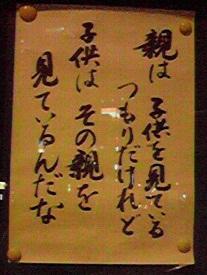 親は 子供を見ている
つもりだけれど
子供は その親を
見ているんだな